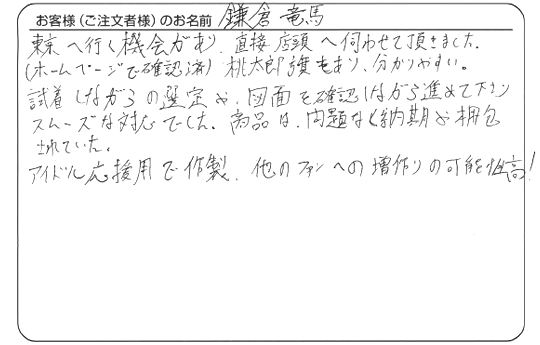 お客様(ご注文者様)のお名前 鎌倉 竜馬
東京へ行く機会があり、直接店頭へ伺わせて頂きました。
(ホームページで確認済) 桃太郎旗もあり、分かりやすい。
試着しながらの選定や、図面を確認しながら進めて下さり
スムーズな対応でした。商品は、問題なく納期や梱包
されていた。
アイドル応援用で作製、他のファンへの増作りの可能性高!